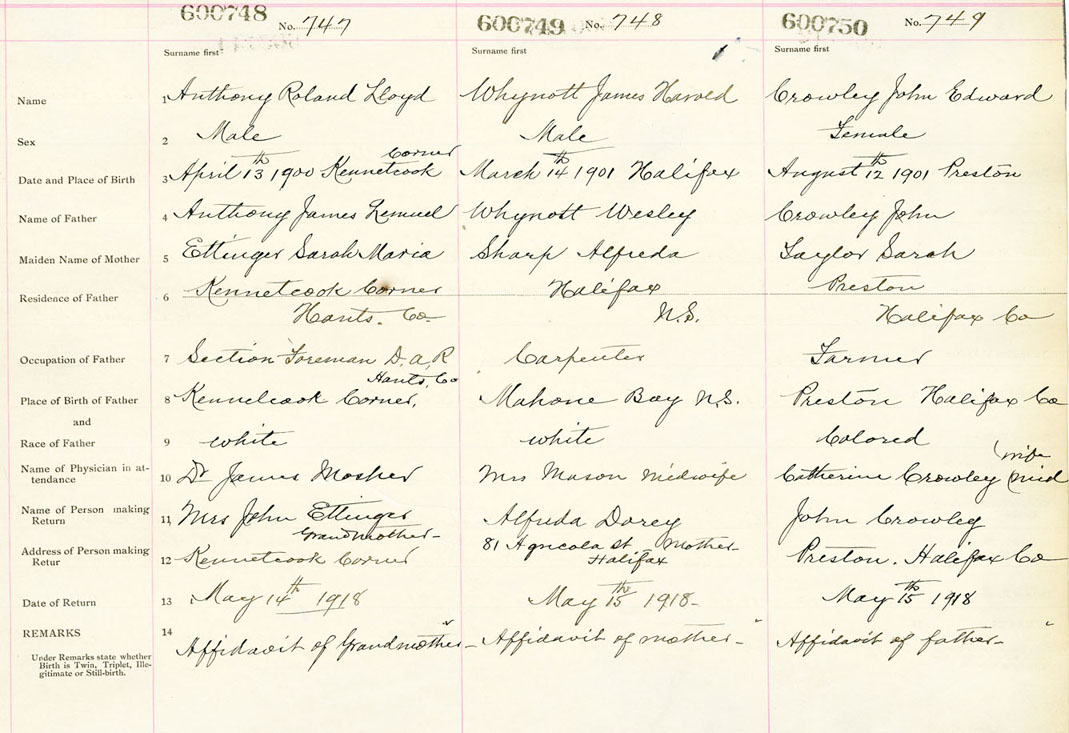 600748 No. 747 600749 No. 748 600750 No. 749
Surname first Surname first Surname first
Name 1 Anthony Roland Lloyd Whynott James Harold Crowley John Edward
Sex 2 Male Male Female
Corner
Date and Place of Birth 3 April 13th 1900 Kennetcook March 14th 1901 Halifax August 12th 1901 Preston
Name of Father 4 Anthony James Lemuel Whynott Wesley Crowley John
Maiden Name of Mother 5 Ettinger Sarah Maria Sharp Alfreda Taylor Sarah
Residence of Father 6 Kennetcook Corner Halifax Preston
Hants. Co. N.S. Halifax Co
Occupation of Father 7 Section Foreman D.a.R Carpenter Farmer
Hants, Co
Place of Birth of Father 8 Kennelcook Corner, Mahone Bay N.S. Preston Halifax Co
and
Race of Father 9 white white Colored
wife
Name of Physician in at- 10 Dr James Mosher Mrs Mason midwife Catherine Crowley (mid
tendance
Name of Person making 11 Mrs John Ettinger Alfreda Dorey John Crowley
Return Grandmother-
Address of Person making 12 Kennetcook Corner 81 Agricola St Mother- Preston. Halifax Co
Retur Halifax
Date of Return 13 May 14th 1918 May 15th 1918- May 15th 1918
REMARKS 14 Affidavit of Grandmother- Affidavit of mother- Affidavit of father-
Under Remarks state whether
Birth is Twin, Triplet, Ille-
gitimate or Still-birth.